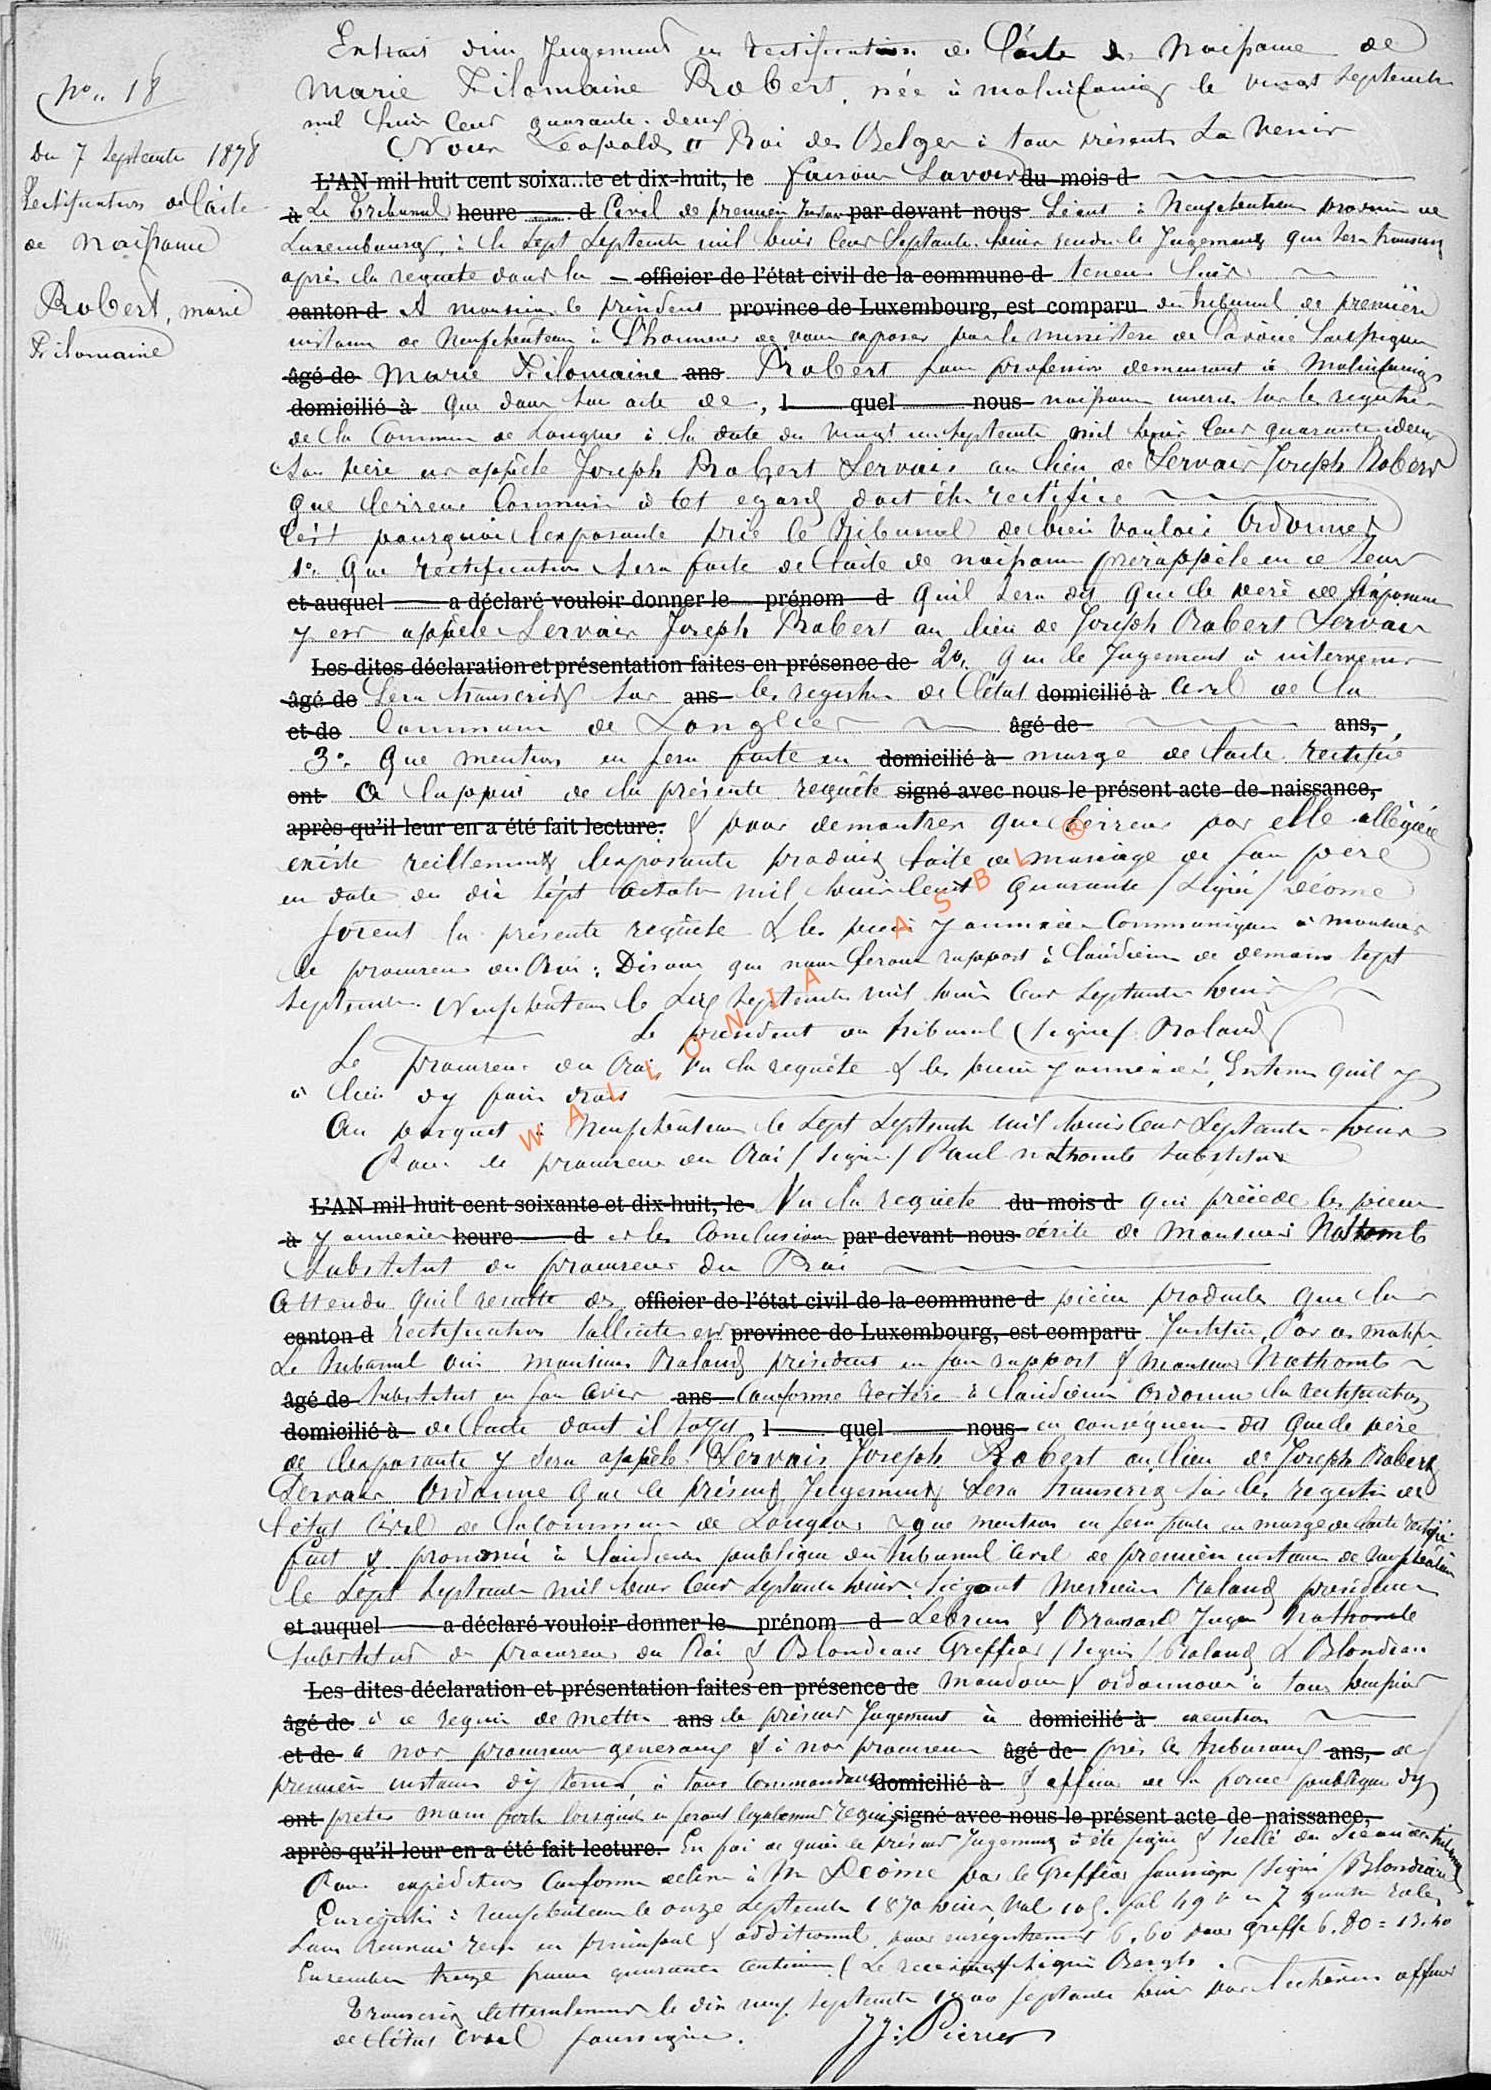 No 18
Du 7 Septembre 1878
Rectification de l'acte
de naissance
Robert, marie
Filomaine
Extrait d'un Jugement en rectification de l'acte de naissance de
Marie Filomaine Robert, née à Molinfaing le vingt Septembre
mil huit cent quarante-deux
Nous Léopold II Roi des Belges à tous présents & à venir
L'AN mil huit cent soixante et dix-huit, le faisons Savoir du mois d
à Le Tribunal heure d Civil de premier par devant nous Séant à Neufchateau province de
Luxembourg, à le Sept Septembre mil huit cent Septante-huit rendu le Jugement qui sera transcrit
après la requête dont la officier de l'état civil de la commune d teneur Suit
canton d A monsieur le président province de Luxembourg, est comparu du tribunal de première
instance de Neufchâteau à l'honneur de vous exposer par le ministère de l'avoué Soussigné
âgé de Marie Filomaine ans Robert sans profession demeurant à Molinfaing
domicilié à que dans son acte de , l quel nous naissance inscrit sur les registres
de la Commune de Longlier à la date du vingt un septembre mil huit cent quarante deux
Son père est appelé Joseph Robert Servais au lieu de Servais Joseph Robert
que l'erreur commise à cet égard doit être rectifiée
C'est pourquoi l'exposante prie le Tribunal de bien vouloir Ordonner
1°. Que rectification sera faite de l'acte de naissance prérappelé en ce sens
et auquel a déclaré vouloir donner le prénom d qu'il sera dit que le père de l'exposante
y est appelé Servais Joseph Robert au lieu de Joseph Robert Servais
Les dites déclaration et présentation faites en présence de 2°. Que le Jugement à intervenir
âgé de Sera transcrit sur ans les registres de l'état domicilié à Civil de la
et de Commune de Longlier âgé de ans,
3°. Que mention en sera faite en domicilié à marge de l'acte rectifié
ont A l'appui de la présente requête signé avec nous le présent acte de naissance,
après qu'il leur en a été fait lecture. & pour demontrer que l'erreur par elle alléguée
existe réellement l'exposante produit l'acte de mariage de son père
en date du dix sept Octobre mil huit cent quarante / Signé / Déome
Soient la présente requête & les pièces y annexées Communiquées à monsieur
le procureur du Roi; Disons que nous ferons rapport à l'audience de demain sept
Septembre. Neufchâteau le Six Septembre mil huit cent Septante huit
Le président du tribunal (signé) Roland
Le procureur du Roi, Vu la requête & les pièces y annexées, Estime qu'il y
a lieu d'y faire droit
Au parquet à Neufchâteau le Sept Septembre mil huit cent Septante-huit
Pour le procureur du Roi / Signé / Paul Nothomb Substitut
L'AN mil huit cent soixante et dix-huit, le Vu la requête du mois d qui précède les pièces
à y annexées heure d et les Conclusions par devant nous écrite de Monsieur Nothomb
Substitut du procureur du Roi
Attendu qu'il résulte des officier de l'état civil de la commune d pièces produites que la
canton d rectification sollicitée est province de Luxembourg, est comparu Justifiée, Par ces motifs
Le tribunal oui monsieur Roland président en son rapport & Monsieur Nothomb
âgé de Substitut en son avis ans Conforme à l'audience Ordonne la rectification
domicilié à de l'acte dont il s'agit, l quel nous en conséquence dit que le père
de l'exposante y sera appelé Servais Joseph Robert au lieu de Joseph Robert
Servais Ordonne que le présent Jugement sera transcrit sur les registres de
l'état Civil de la Commune de Longlier & que mention en sera faite en marge de l'acte rectifié
Fait & prononcé à l'audience publique du tribunal Civil de première instance de Neufchâteau
le Sept Septembre mil huit cent Septante huit Siégeant Messieurs Roland président
et auquel a déclaré vouloir donner le prénom d Lebrun & Juges Nothomb
Substitut du procureur du Roi & Blondiau Greffier / Signé / Roland & Blondiau
Les dites déclaration et présentation faites en présence de Mandons & ordonnons à tous huissiers
âgé de à ce requis de mettre ans le présent Jugement à domicilié à exécution
et de à nos procureurs généraux & à nos procureurs âgé de près les tribunaux ans, de
première instance d'y tenir, à tous commandants domicilié à & officiers de la force publique d'y
ont prêter main forte lorsqu'ils en seront légalement requis signé avec nous le présent acte de naissance,
après qu'il leur en a été fait lecture. En foi de quoi le présent Jugement a été signé & scellé du Sceau du tribunal
Pour expédition conforme délivré à Mr Déome par le Greffier soussigné / Signé / Blondiau
Enregistré à Neufchâteau le onze Septembre 1870 huit, Vol 108. fol 49
en principal & additionnel, pour enregistrement 6,60 pour greffe 6.80 = 13.40
Ensemble treize francs quarante centimes / Le receveur / signé
Transcrit littéralement le dix neuf Septembre Septante huit par officier
de l'état Civil soussigné.
J J: Pierret
WALLONIA ASBL ®